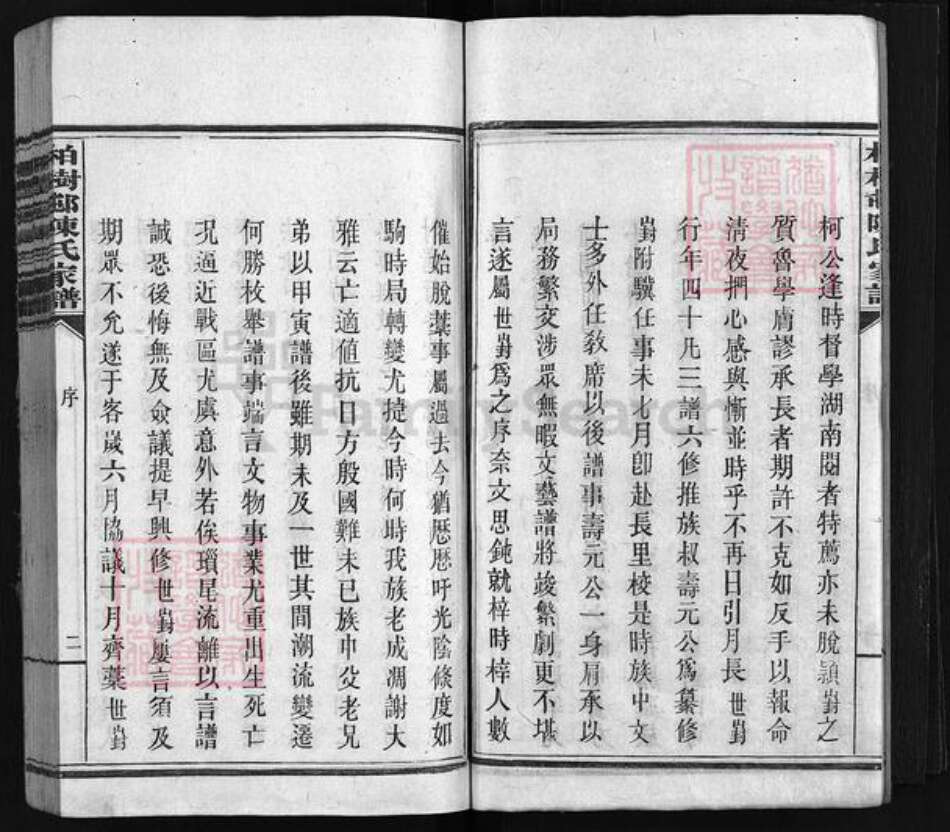 柯公逢時督學湖南閱者特薦亦未脫頴對之
質魯學膚謬承長者期許不克如反手以報命
清夜捫心感與慚並時乎不再日引月長世對
行年四十凡三譜六修推族叔壽元公爲纂修
對附驥任事未七月卽赴長里校是時族中文
士多外任教席以後譜事壽元公一身肩承以
局務繁交涉眾無暇文藝譜將竣繁劇更不堪
言遂屬世對爲之序奈文思鈍就梓時梓人數
催始脫藁事屬過去今猶歷歷吁光陰倏度如
駒時局轉變尤㨗今時何時我族老成凋謝大
雅云亡適値抗日方殷國難未已族中父老兄
弟以甲寅譜後雖期未及一世其間潮流變遷
何勝枚舉譜事端言文物事業尤重出生死亡
况逼近戰區尤虞意外若俟瑣尾流離以言譜
誠恐後悔無及僉議提早興修世對屢言須及
期眾不允遂于客歲六月協議十月齊藁世對
柏樹邨陳氏家譜
序
二
FamilySearch